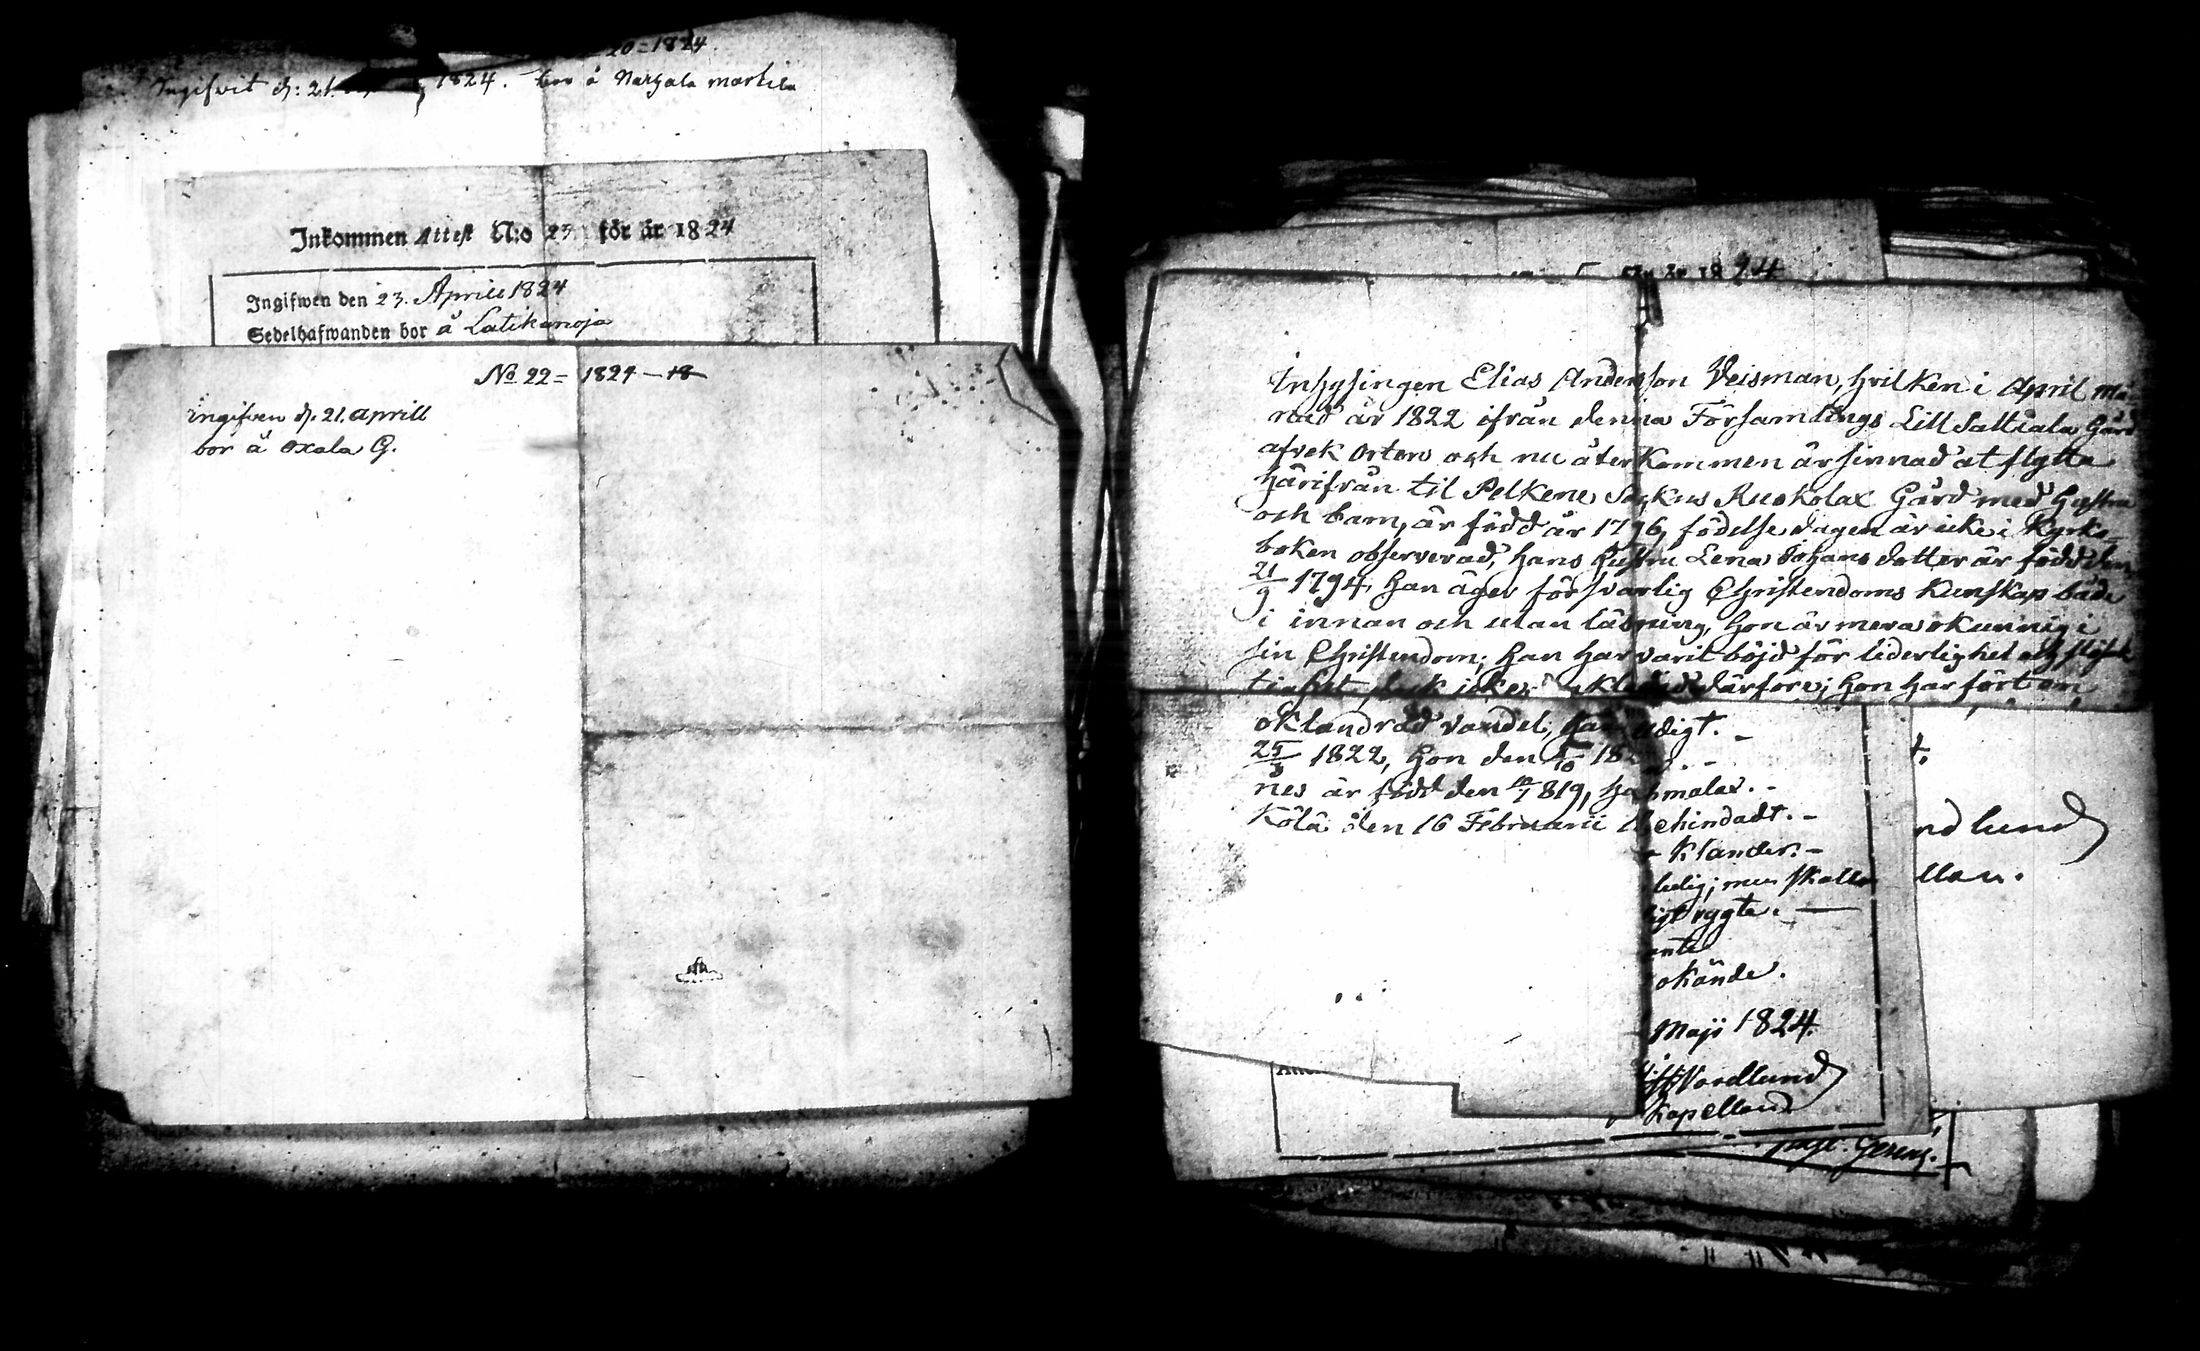 20=1824.
Ingifvit d: 21. 1824. bor å Naryala martila
Inkommen Attest N:o 23 för år 1824
Ingifwen den 23. Aprill 1824
Sedelhafwanden bor å Latikanoja
No 22= 1824-18
ingifven d. 21. aprill
bor å oxala G.
för år 1824
Inhysingen Elias Anderson Veisman, hvilken i April Må
nad år 1822 ifrån denna Församlings Lill Sattiala Gård
afvek Orten och nu återkommen är sinnad at flytta
härifrån til Pelkene Sockns Ruokolax Gård med Hustru
och barn, är född år 1796, födelse dagen är icke i Kyrko-
boken observerad, hans Hustru Lena Johans dotter är född den
21/9 1794, han äger försvarlig Christendoms Kunskap både
i innan och utan läsning, hon är mera okunnig i
sin Christendom; han har varit böjd för liderlighet och
därföre; hon har fört en
oklandrad vandel; han
25/3 1822, hon den 182
nes är född den 1819,
den 16 Februarii
digt. -
malax. -
ehindadt. -
Klander. -
ledig; men skall
rygte. -
ante
okände.
Maji 1824.
Nordlund
Kapellan
t,
nd lund
llan.